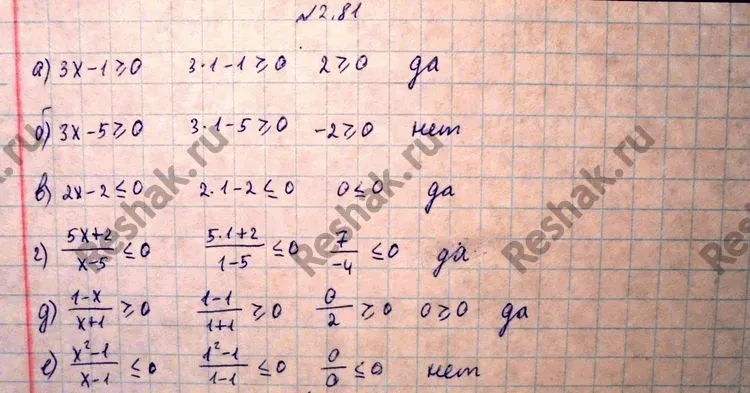 №2.81
а) 3x-1≥0 3·1-1≥0 2≥0 да
б) 3x-5≥0 3·1-5≥0 -2≥0 нет
в) 2x-2≤0 2·1-2≤0 0≤0 да
г) (5x+2)/(x-5)≤0 (5·1+2)/(1-5)≤0 7/(-4)≤0 да
д) (1-x)/(x+1)≥0 (1-1)/(1+1)≥0 0/2≥0 0≥0 да
е) (x²-1)/(x-1)≤0 (1²-1)/(1-1)≤0 0/0≤0 нет
Reshak.ru
Reshak.ru
Reshak.ru
Reshak.ru